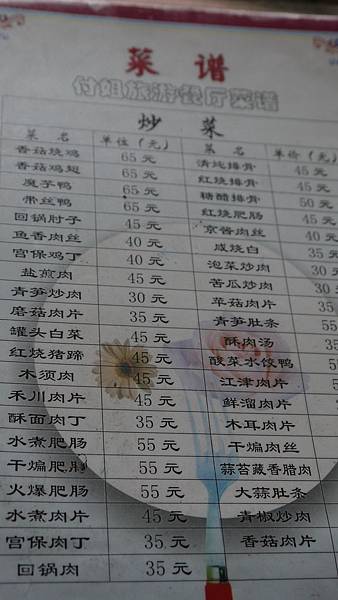 菜 谱
付姐旅游餐厅菜谱
炒 菜
菜 名 单位（元） 菜 名 单价（元）
香菇烧鸡 65 元 清炖排骨 45 元
香菇鸡翅 65 元 红烧排骨 45 元
魔子鸭 65 元 糖醋排骨 50 元
带丝鸭 65 元 红烧肥肠 45 元
回锅肘子 45 元 京酱肉丝 40 元
鱼香肉丝 40 元 咸烧白 35
宫保鸡丁 40 元 泡菜炒肉 30
盐煎肉 45 元 苦瓜炒肉 30
青笋炒肉 30 元 平菇肉片 35
磨菇肉片 35 元 青笋肚条 55
罐头白菜 45 元 酥肉汤 35
红烧猪蹄 45 元 酸菜水饺鸭 5
木须肉 45 元 江津肉片
禾川肉片 45 元 鲜溜肉片
酥面肉丁 35 元 木耳肉片
水煮肥肠 55 元 干煸肉丝
干煸肥肠 55 元 蒜苔藏香腊肉
火爆肥肠 55 元 大蒜肚条
水煮肉片 45 元 青椒炒肉
宫保肉丁 35 元 香菇肉片
回锅肉 35 元